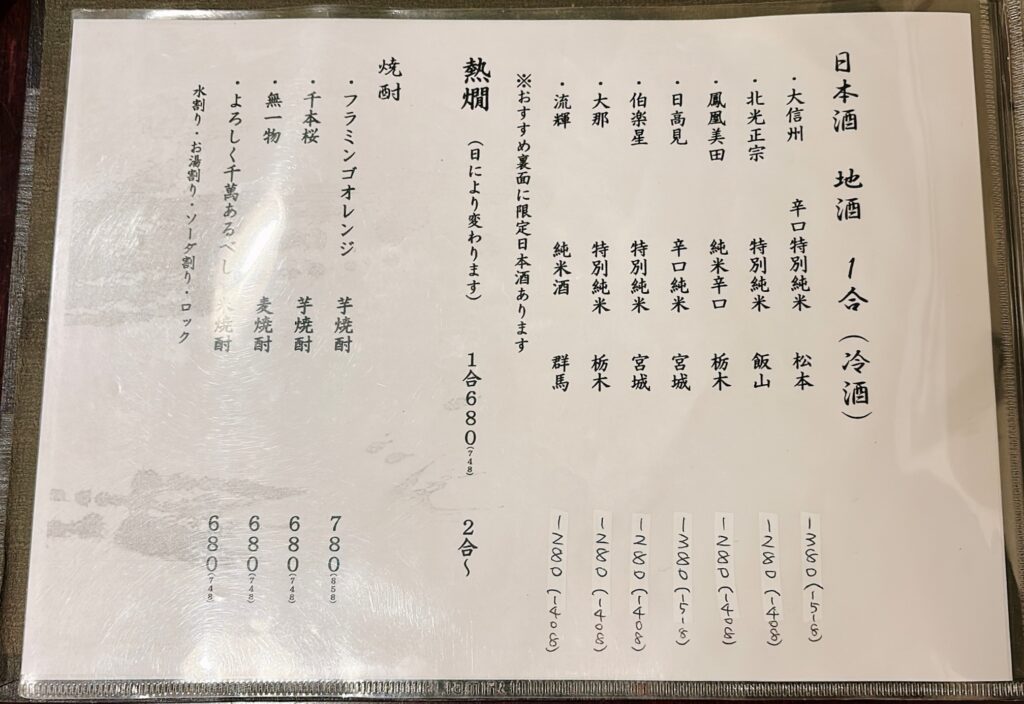 日本酒　地酒　1合（冷酒）
・大信州　辛口特別純米　松本　1380（1518）
・北光正宗　特別純米　飯山　1280（1408）
・鳳凰美田　純米辛口　栃木　1280（1408）
・日高見　辛口純米　宮城　1380（1518）
・伯楽星　特別純米　宮城　1280（1408）
・大那　特別純米　栃木　1280（1408）
・流輝　純米酒　群馬　1280（1408）
※おすすめ裏面に限定日本酒あります
熱燗　（日により変わります）　1合680（748）　2合～
焼酎
・フラミンゴオレンジ　芋焼酎　780（858）
・千本桜　芋焼酎　680（748）
・無一物　麦焼酎　680（748）
・よろしく千萬あるべし　米焼酎　680（748）
水割り・お湯割り・ソーダ割り・ロック